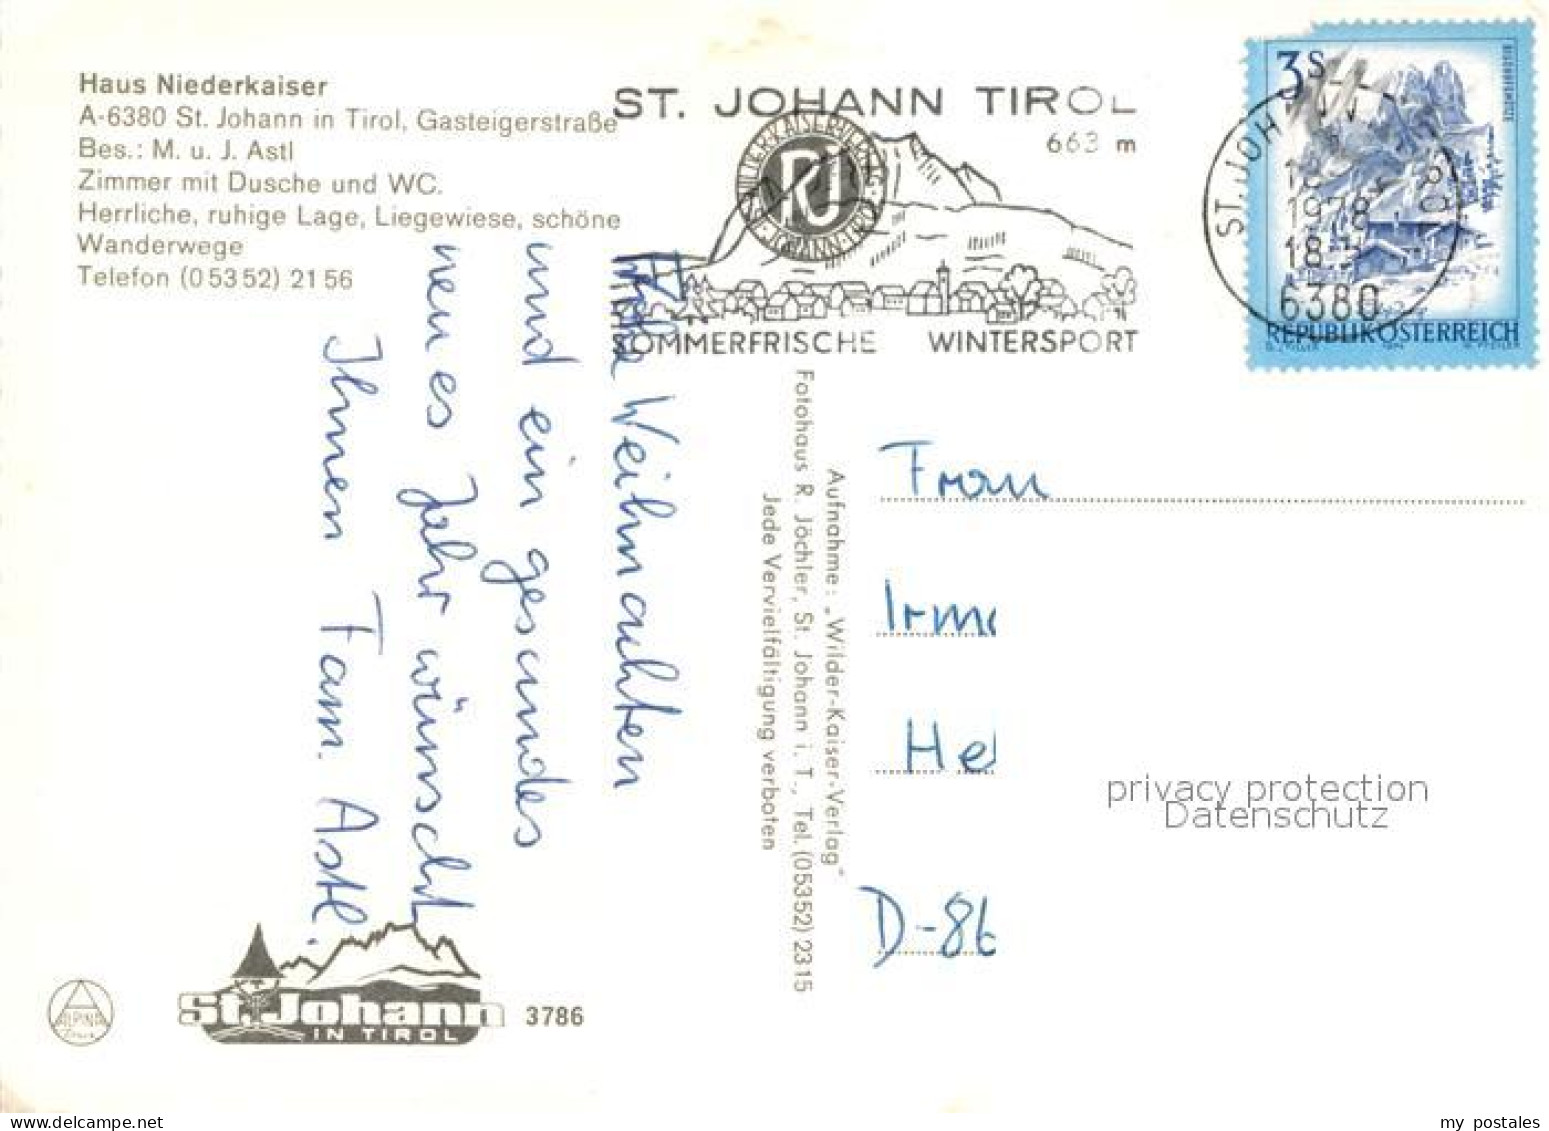 Haus Niederkaiser
A-6380 St. Johann in Tirol, Gasteigerstraße
Bes.: M. u. J. Astl
Zimmer mit Dusche und WC.
Herrliche, ruhige Lage, Liegewiese, schöne
Wanderwege
Telefon (0 53 52) 21 56
ST. JOHANN TIROL
663 m
SOMMERFRISCHE WINTERSPORT
WILDERKAISERVERLAG
RJ
ST. JOHANN-TIROL
3 S
REPUBLIK ÖSTERREICH
ST. JOH
1978
18
6380
Frohe Weihnachten
und ein gesundes
neues Jahr wünscht
Ihnen Fam. Astl.
Aufnahme: „Wilder-Kaiser-Verlag"
Fotohaus R. Jöchler, St. Johann i. T., Tel. (05352) 2315
Jede Vervielfältigung verboten
Frau
Irma
Hel
D-86
privacy protection
Datenschutz
ALPINA
St. Johann
IN TIROL
3786
my postales